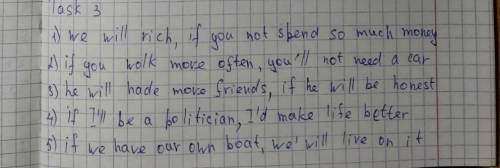 Task 3
1) we will rich, if you not spend so much money
2) if you wolk move often, you'll not need a car
3) he will hade move friends, if he will be honest
4) if I'll be a politician, I'd make life better
5) if we have our own boat, we' will live on it